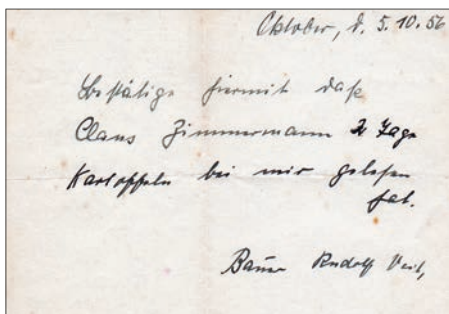 Oktober, d. 5.10.56
Bestätige hiermit daß
Claus Zimmermann 2 Tage
Kartoffeln bei mir gelesen
hat.
Bauer Rudolf